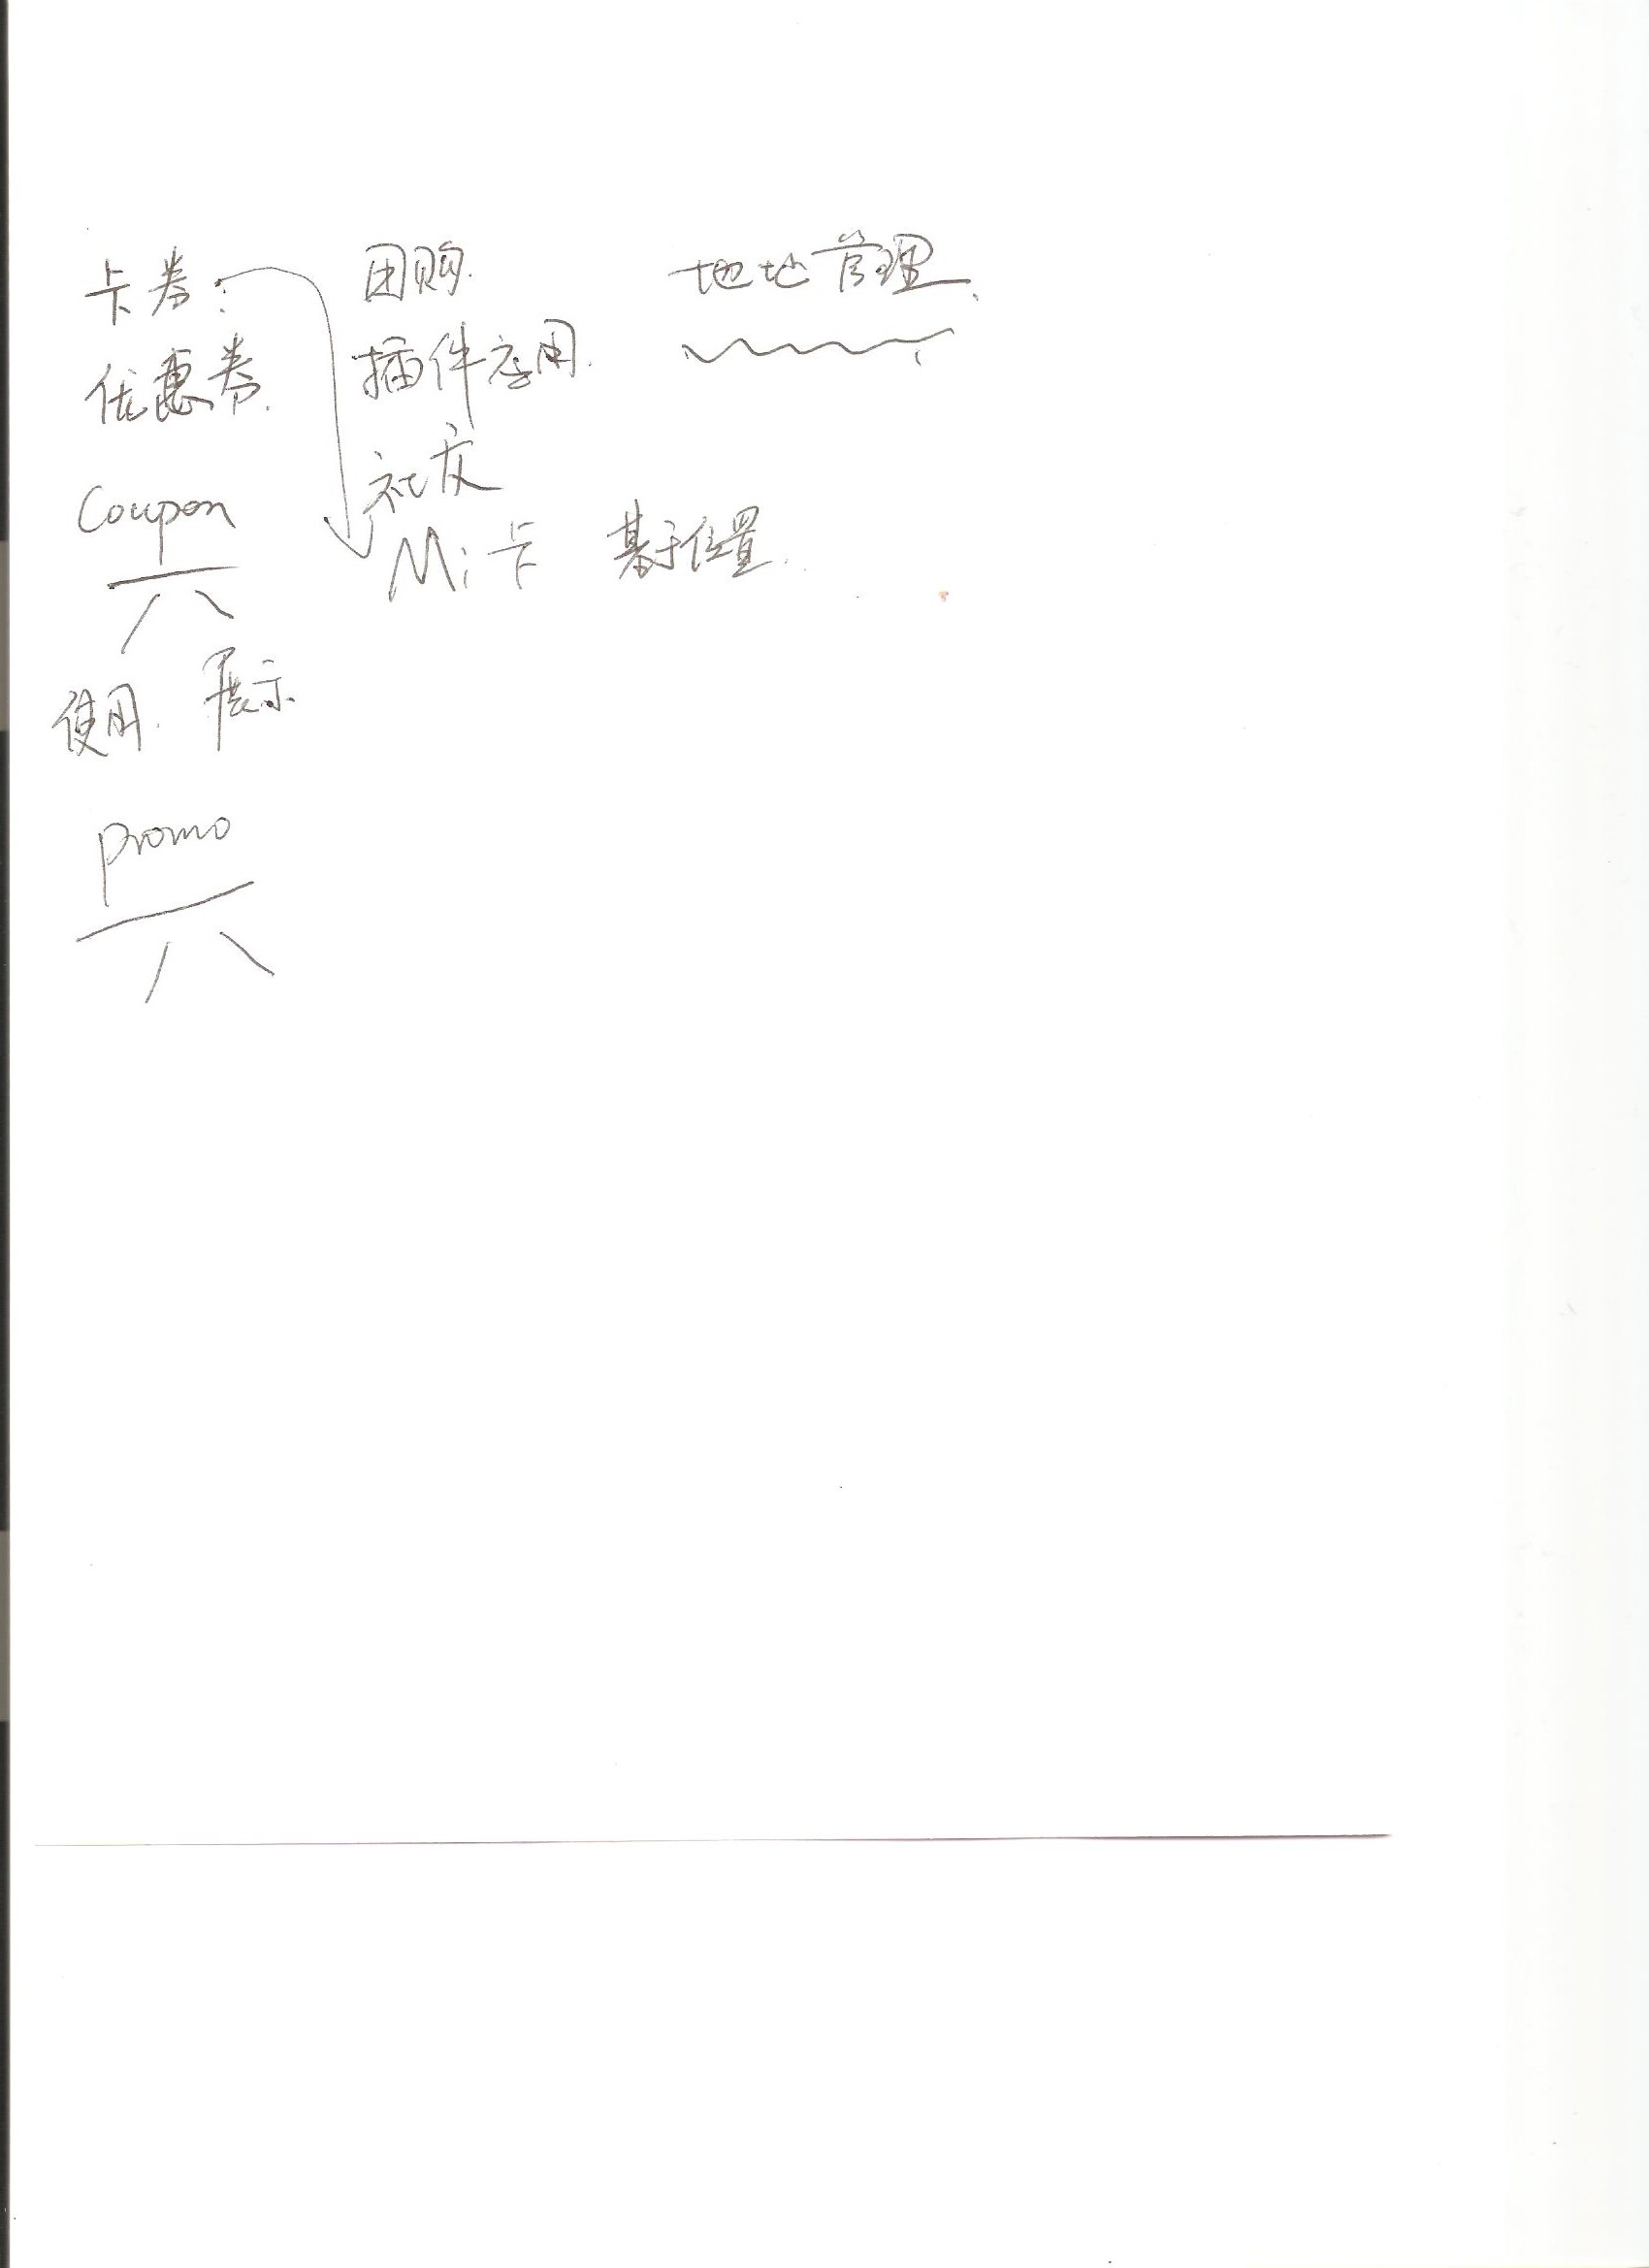 卡券:
优惠券.
Coupon
使用. 展示
promo
团购.
插件应用.
社交
Mi卡 基于位置.
地址管理.